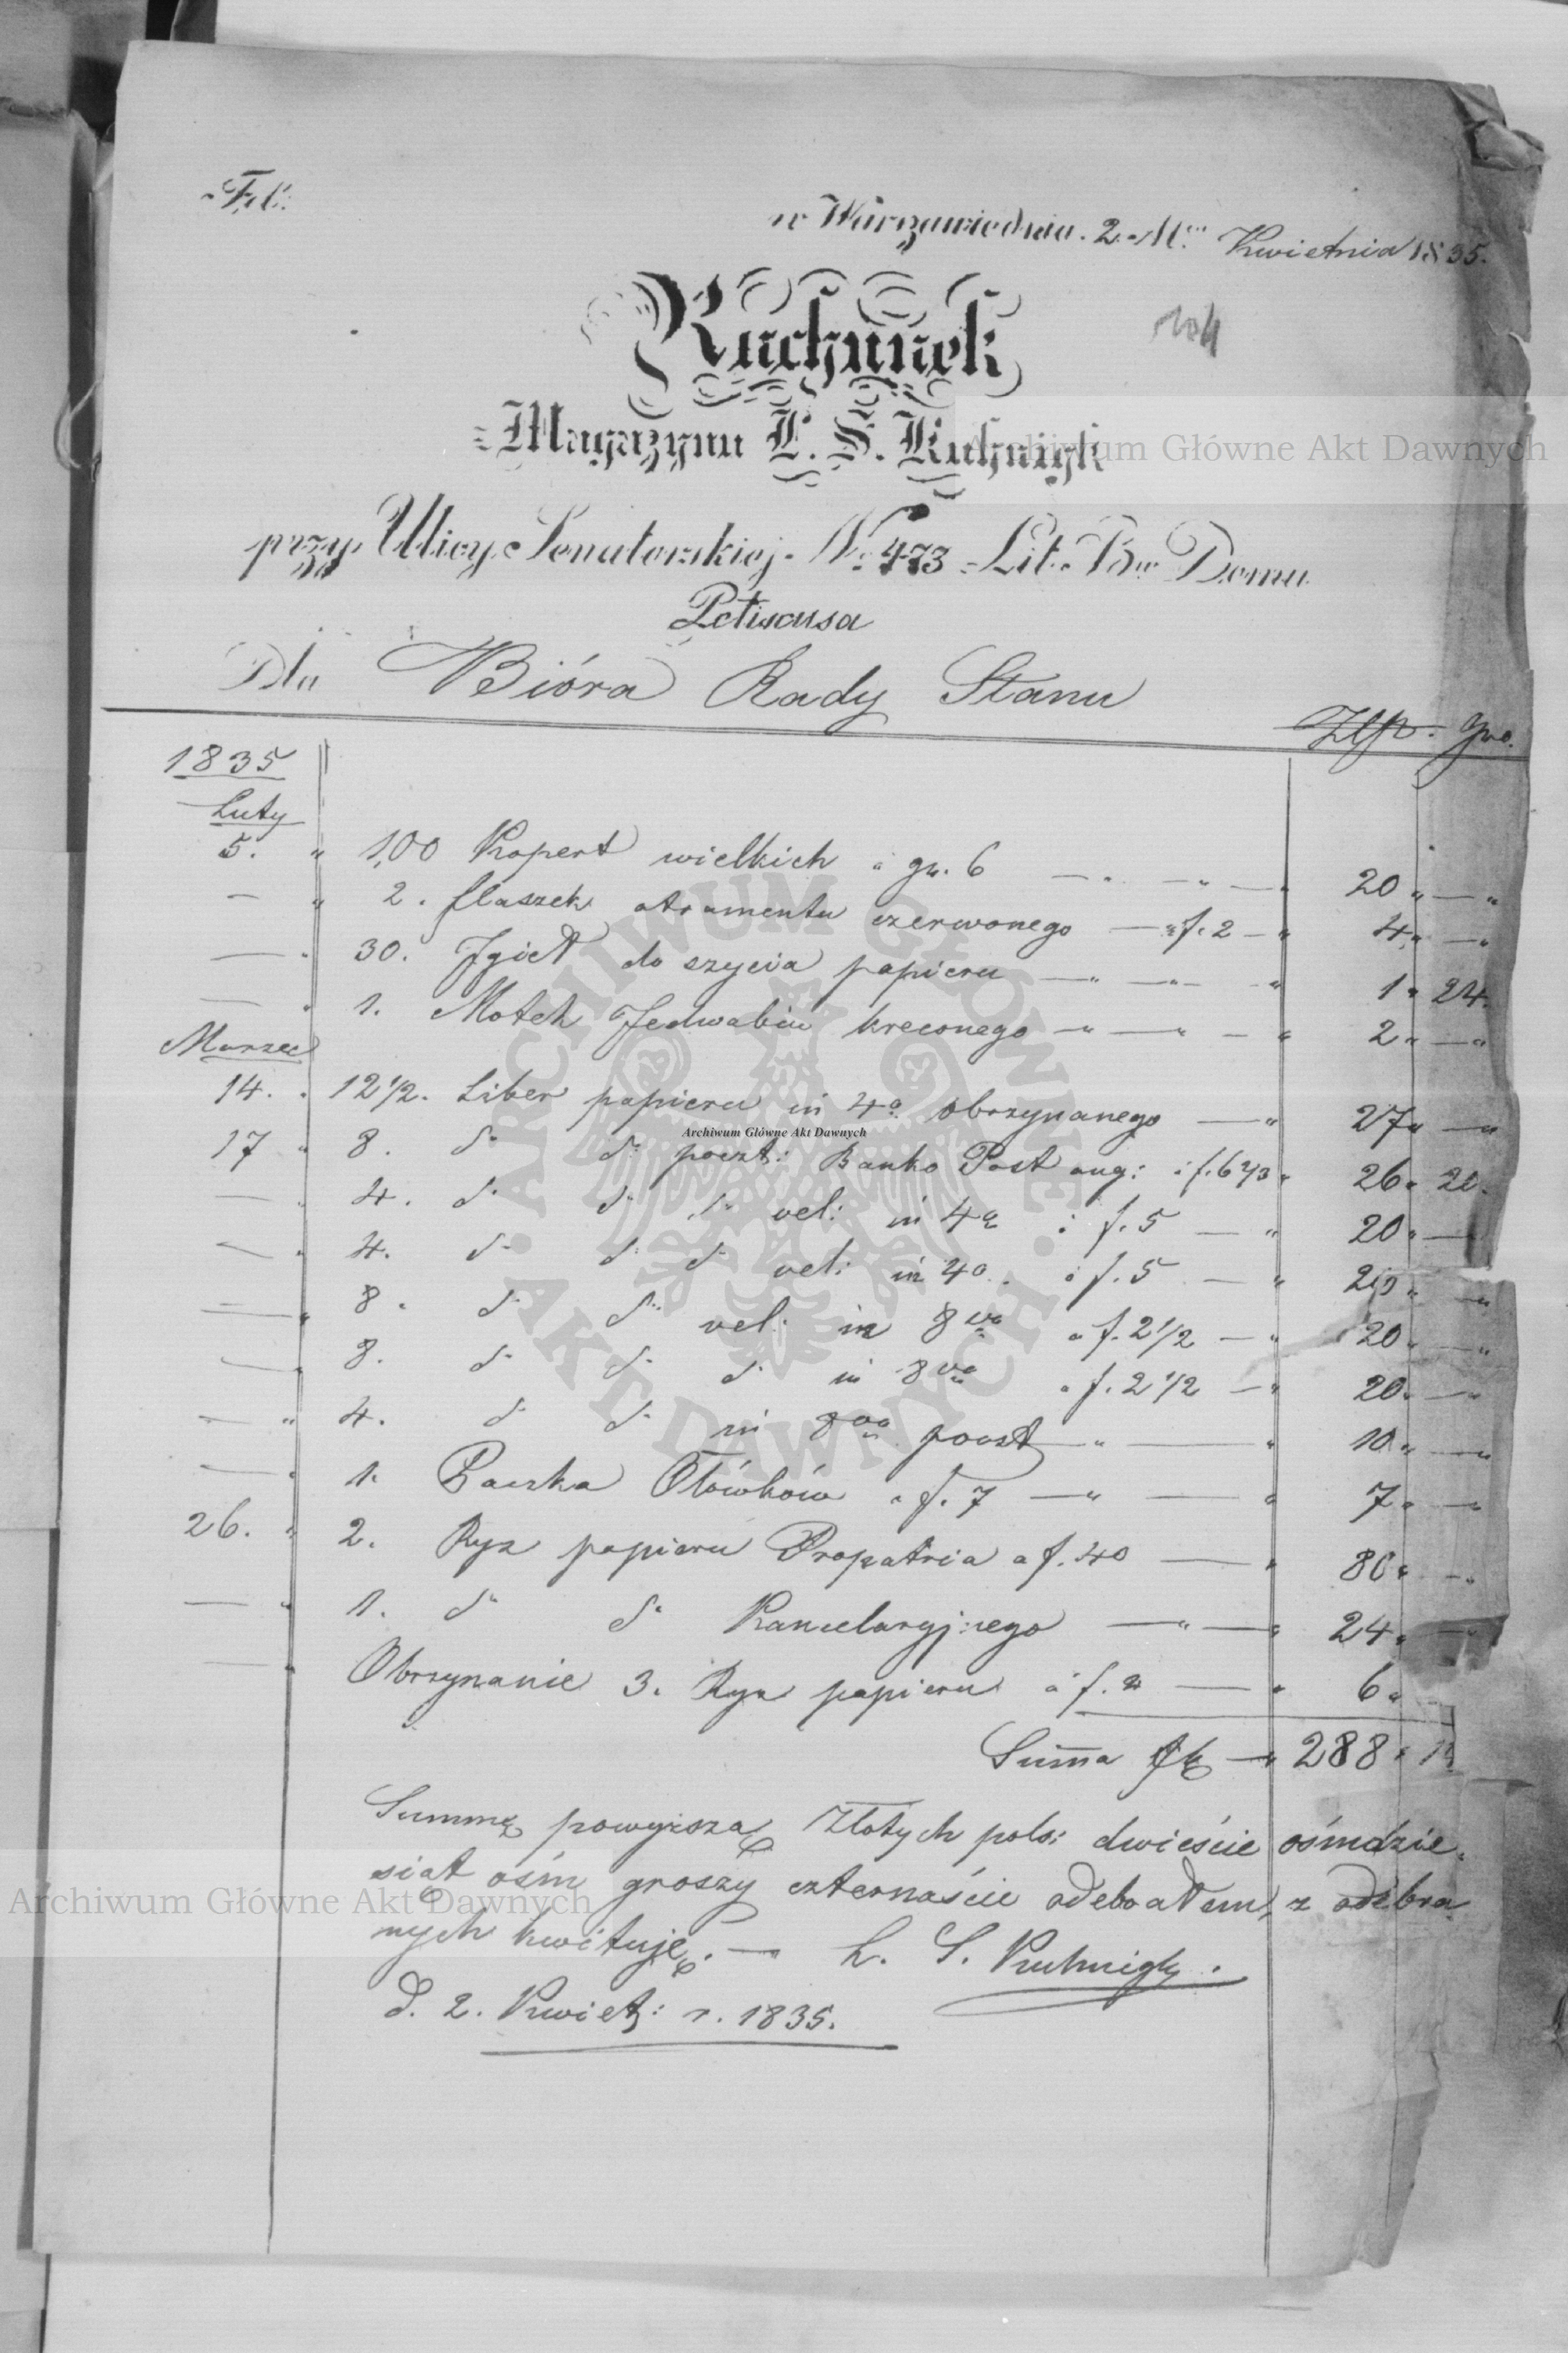 Fol:
w Warszawie dnia 2 M. Kwietnia 1835.
204
Rachunek
Magazynu L. S. Kuhnigk
przy Ulicy Senatorskiej N: 473 Lit. B w Domu
Petiscusa
Dla Bióra Rady Stanu
Zlp. gro.
1835
Luty
5. " 100 Kopert wielkich a gr. 6 — " — " — " 20 " — "
— " 2. flaszek atramentu czerwonego — a f. 2 — " 4 " — "
— " 30. Jgieł do szycia papieru — " — " — " 1 " 24.
— " 1. Motek Jedwabiu kreconego — " — " — " 2 " — "
Marzec
14. " 12 1/2. Liber papieru in 4o obrzynanego — " 27 " — "
17 " 8. d° d° poczt: Banko Post ang: a f. 6 2/3 " 26 " 20.
— " 4. d° d° d° vel: in 4o a f. 5 — " 20 " —
— " 4. d° d° d° vel: in 4o a f. 5 — " 20 " — "
— " 8. d° d° vel: in 8vo a f. 2 1/2 — " 20 " — "
— " 8. d° d° d° in 8vo a f. 2 1/2 — " 20 " — "
— " 4. d° d° in 8vo poczt — " — " 10 " — "
— " 1. Paczka Ołówków a f. 7 — " — " 7 " — "
26. " 2. Ryz papieru Propatria a f. 40 — " 80 " — "
— " 1. d° d° Kancelaryjnego — " — " 24 " — "
— " Obrzynanie 3. Ryz papieru a f. 2 — " 6 "
Summa — " 288 " 14
Summę powyższą Złotych pols: dwieście ośmdzie-
siąt ośm groszy czternaście odebrałem, z odebra-
nych kwituję. — L. S. Kuhnigk.
d. 2. Kwiet: r. 1835.
Archiwum Główne Akt Dawnych
ARCHIWUM GŁÓWNE AKT DAWNYCH
Archiwum Główne Akt Dawnych
Archiwum Główne Akt Dawnych